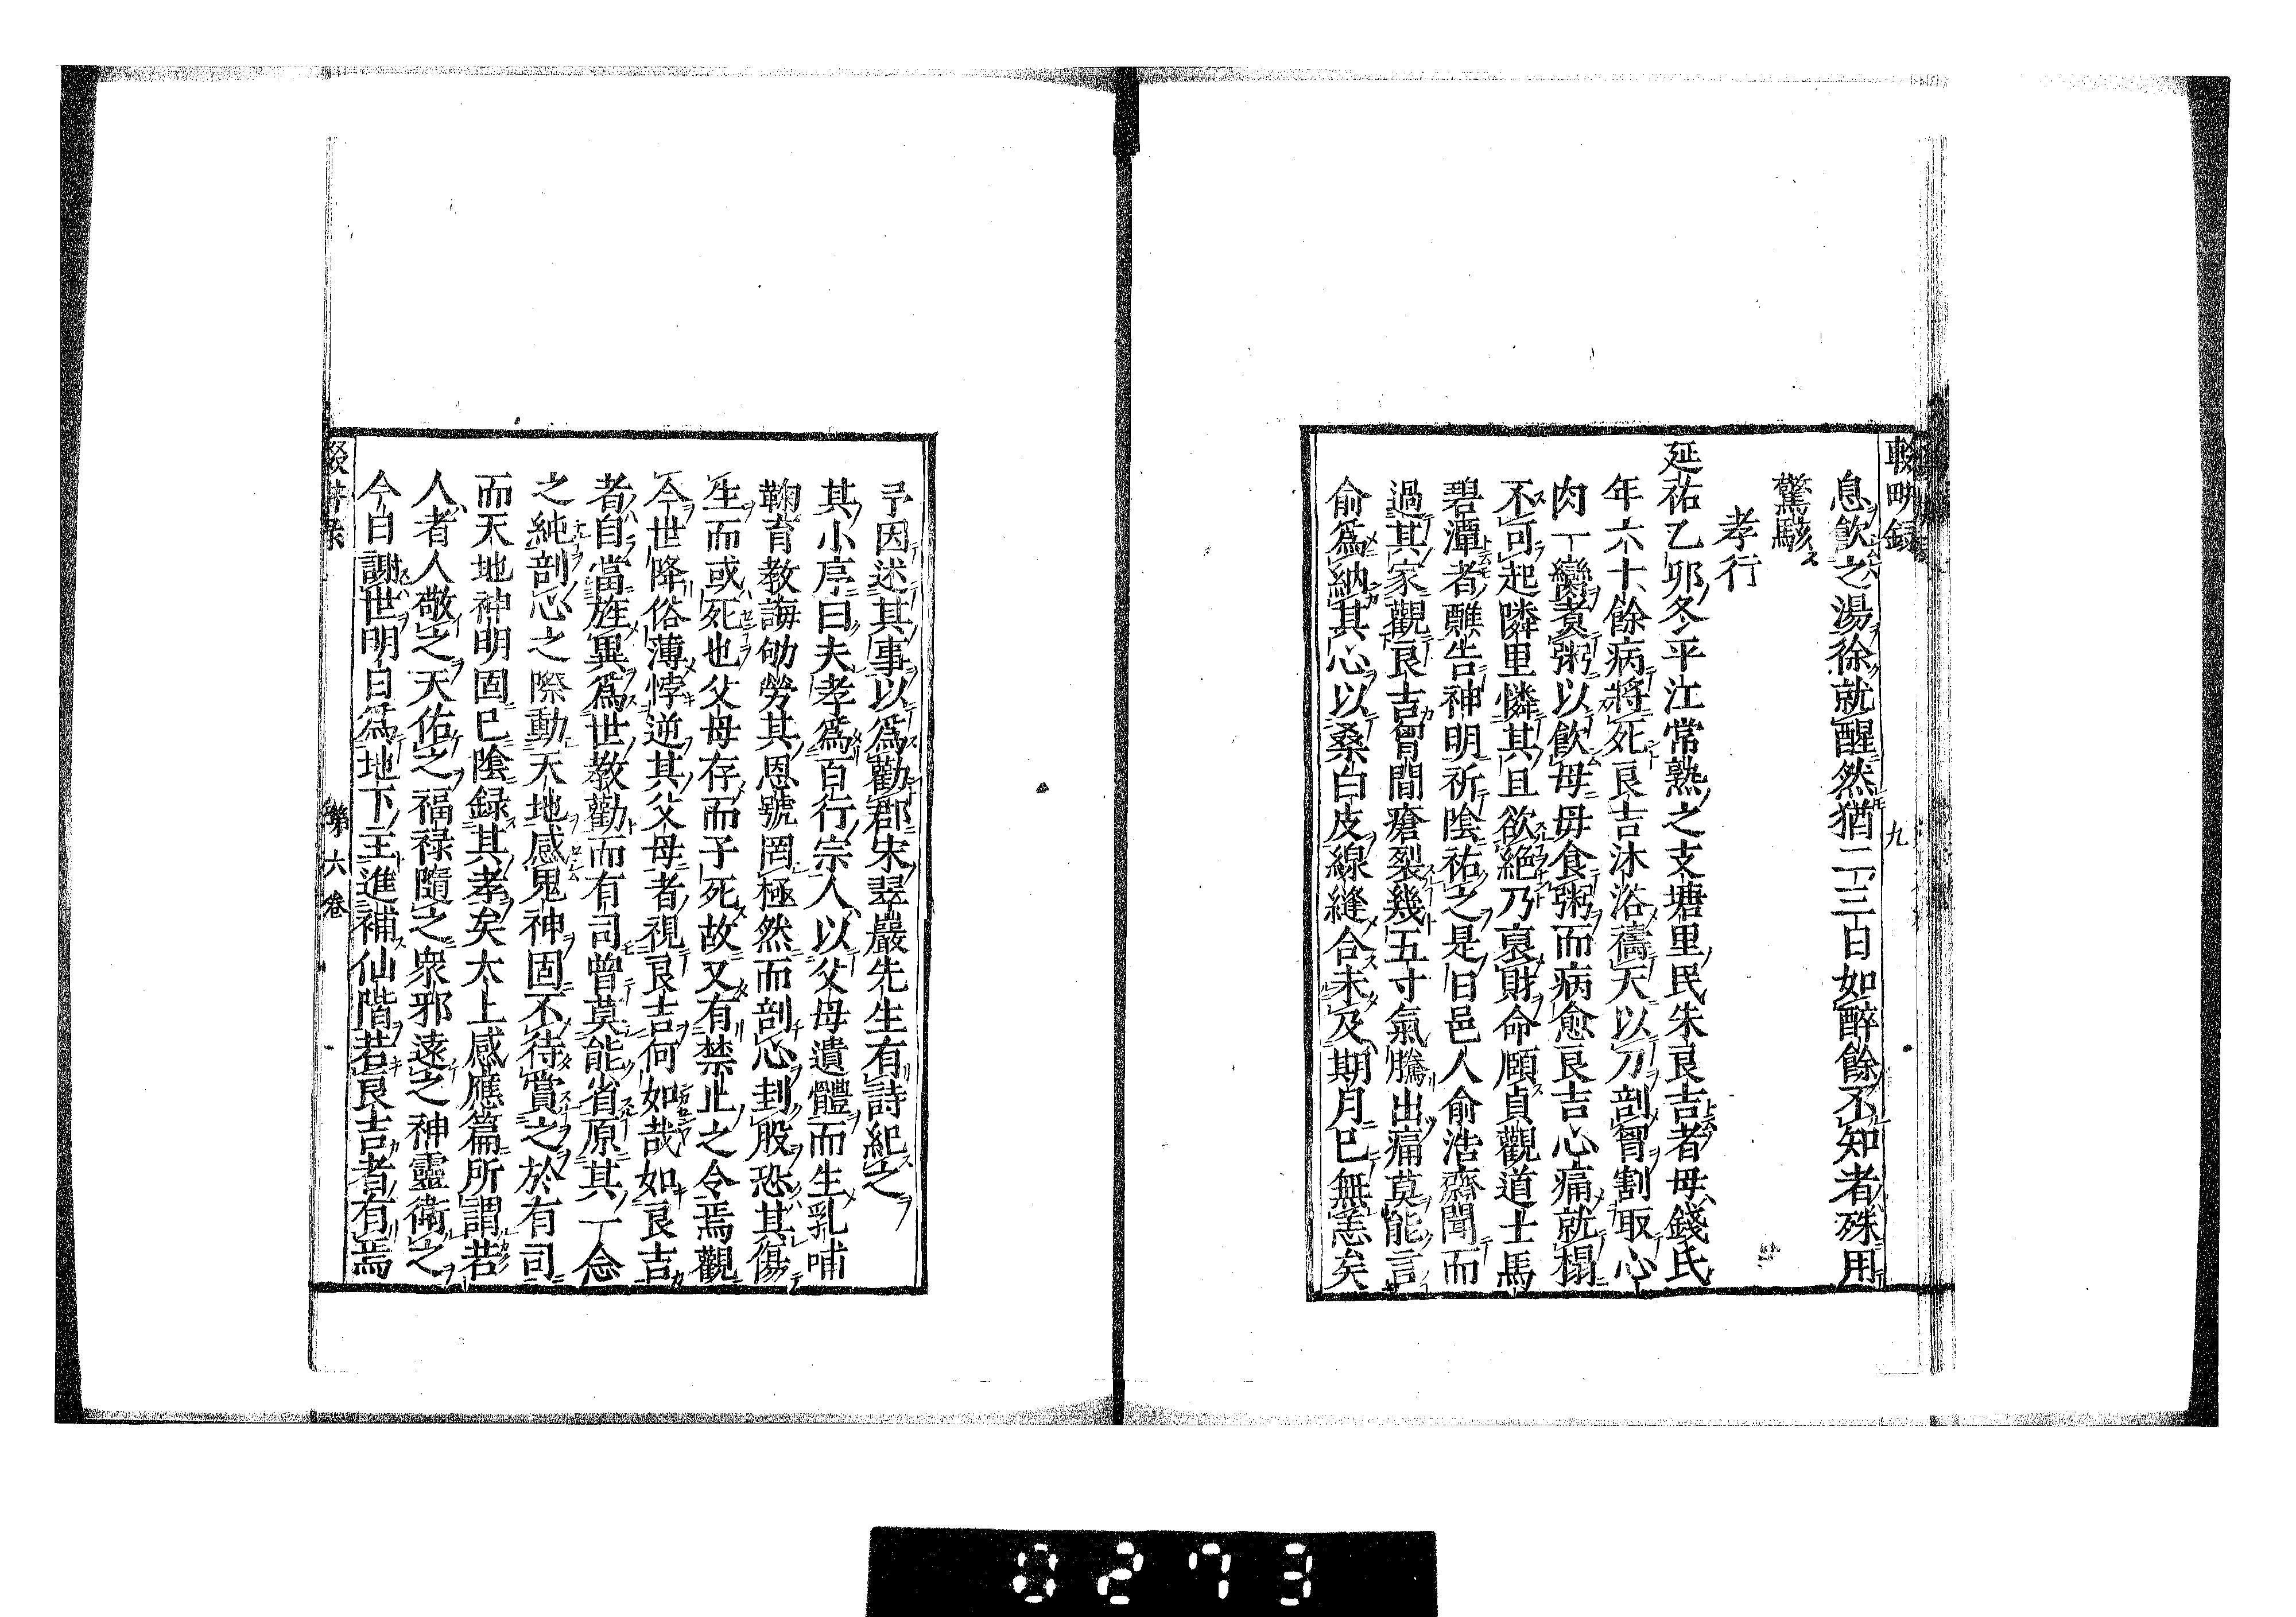 輟畊録 九
息飲之湯徐就醒然猶二三日如醉餘不知者殊用
驚駭
孝行
延祐乙卯冬平江常熟之支塘里民朱良吉者母錢氏
年六十餘病將死良吉沐浴禱天以刀剖胷割取心
肉一臠煮粥以飲母母食粥而病愈良吉心痛就榻
不可起隣里憐其且欲絶乃裒財命顧貞觀道士馬
碧潭者醮告神明祈隂祐之是日邑人俞浩齋聞而
過其家觀良吉胷間瘡裂幾五寸氣騰出痛莫能言
俞爲納其心以桑白皮線縫合未及期月已無恙矣
予因述其事以爲勸郡朱翠巖先生有詩紀之
其小序曰夫孝爲百行宗人以父母遺體而生乳哺
鞠育教誨劬勞其恩號罔極然而剖心刲股恐其傷
生而或死也父母存而子死故又有禁止之令焉觀
今世降俗薄悖逆其父母者視良吉何如哉如良吉
者自當旌異爲世教勸而有司曾莫能省原其一念
之純剖心之際動天地感鬼神固不待賞之於有司
而天地神明固已隂録其孝矣太上感應篇所謂若
人者人敬之天佑之福禄隨之衆邪遠之神靈衛之
今日謝世明日爲地下主進補仙階若良吉者有焉
第六卷
0273